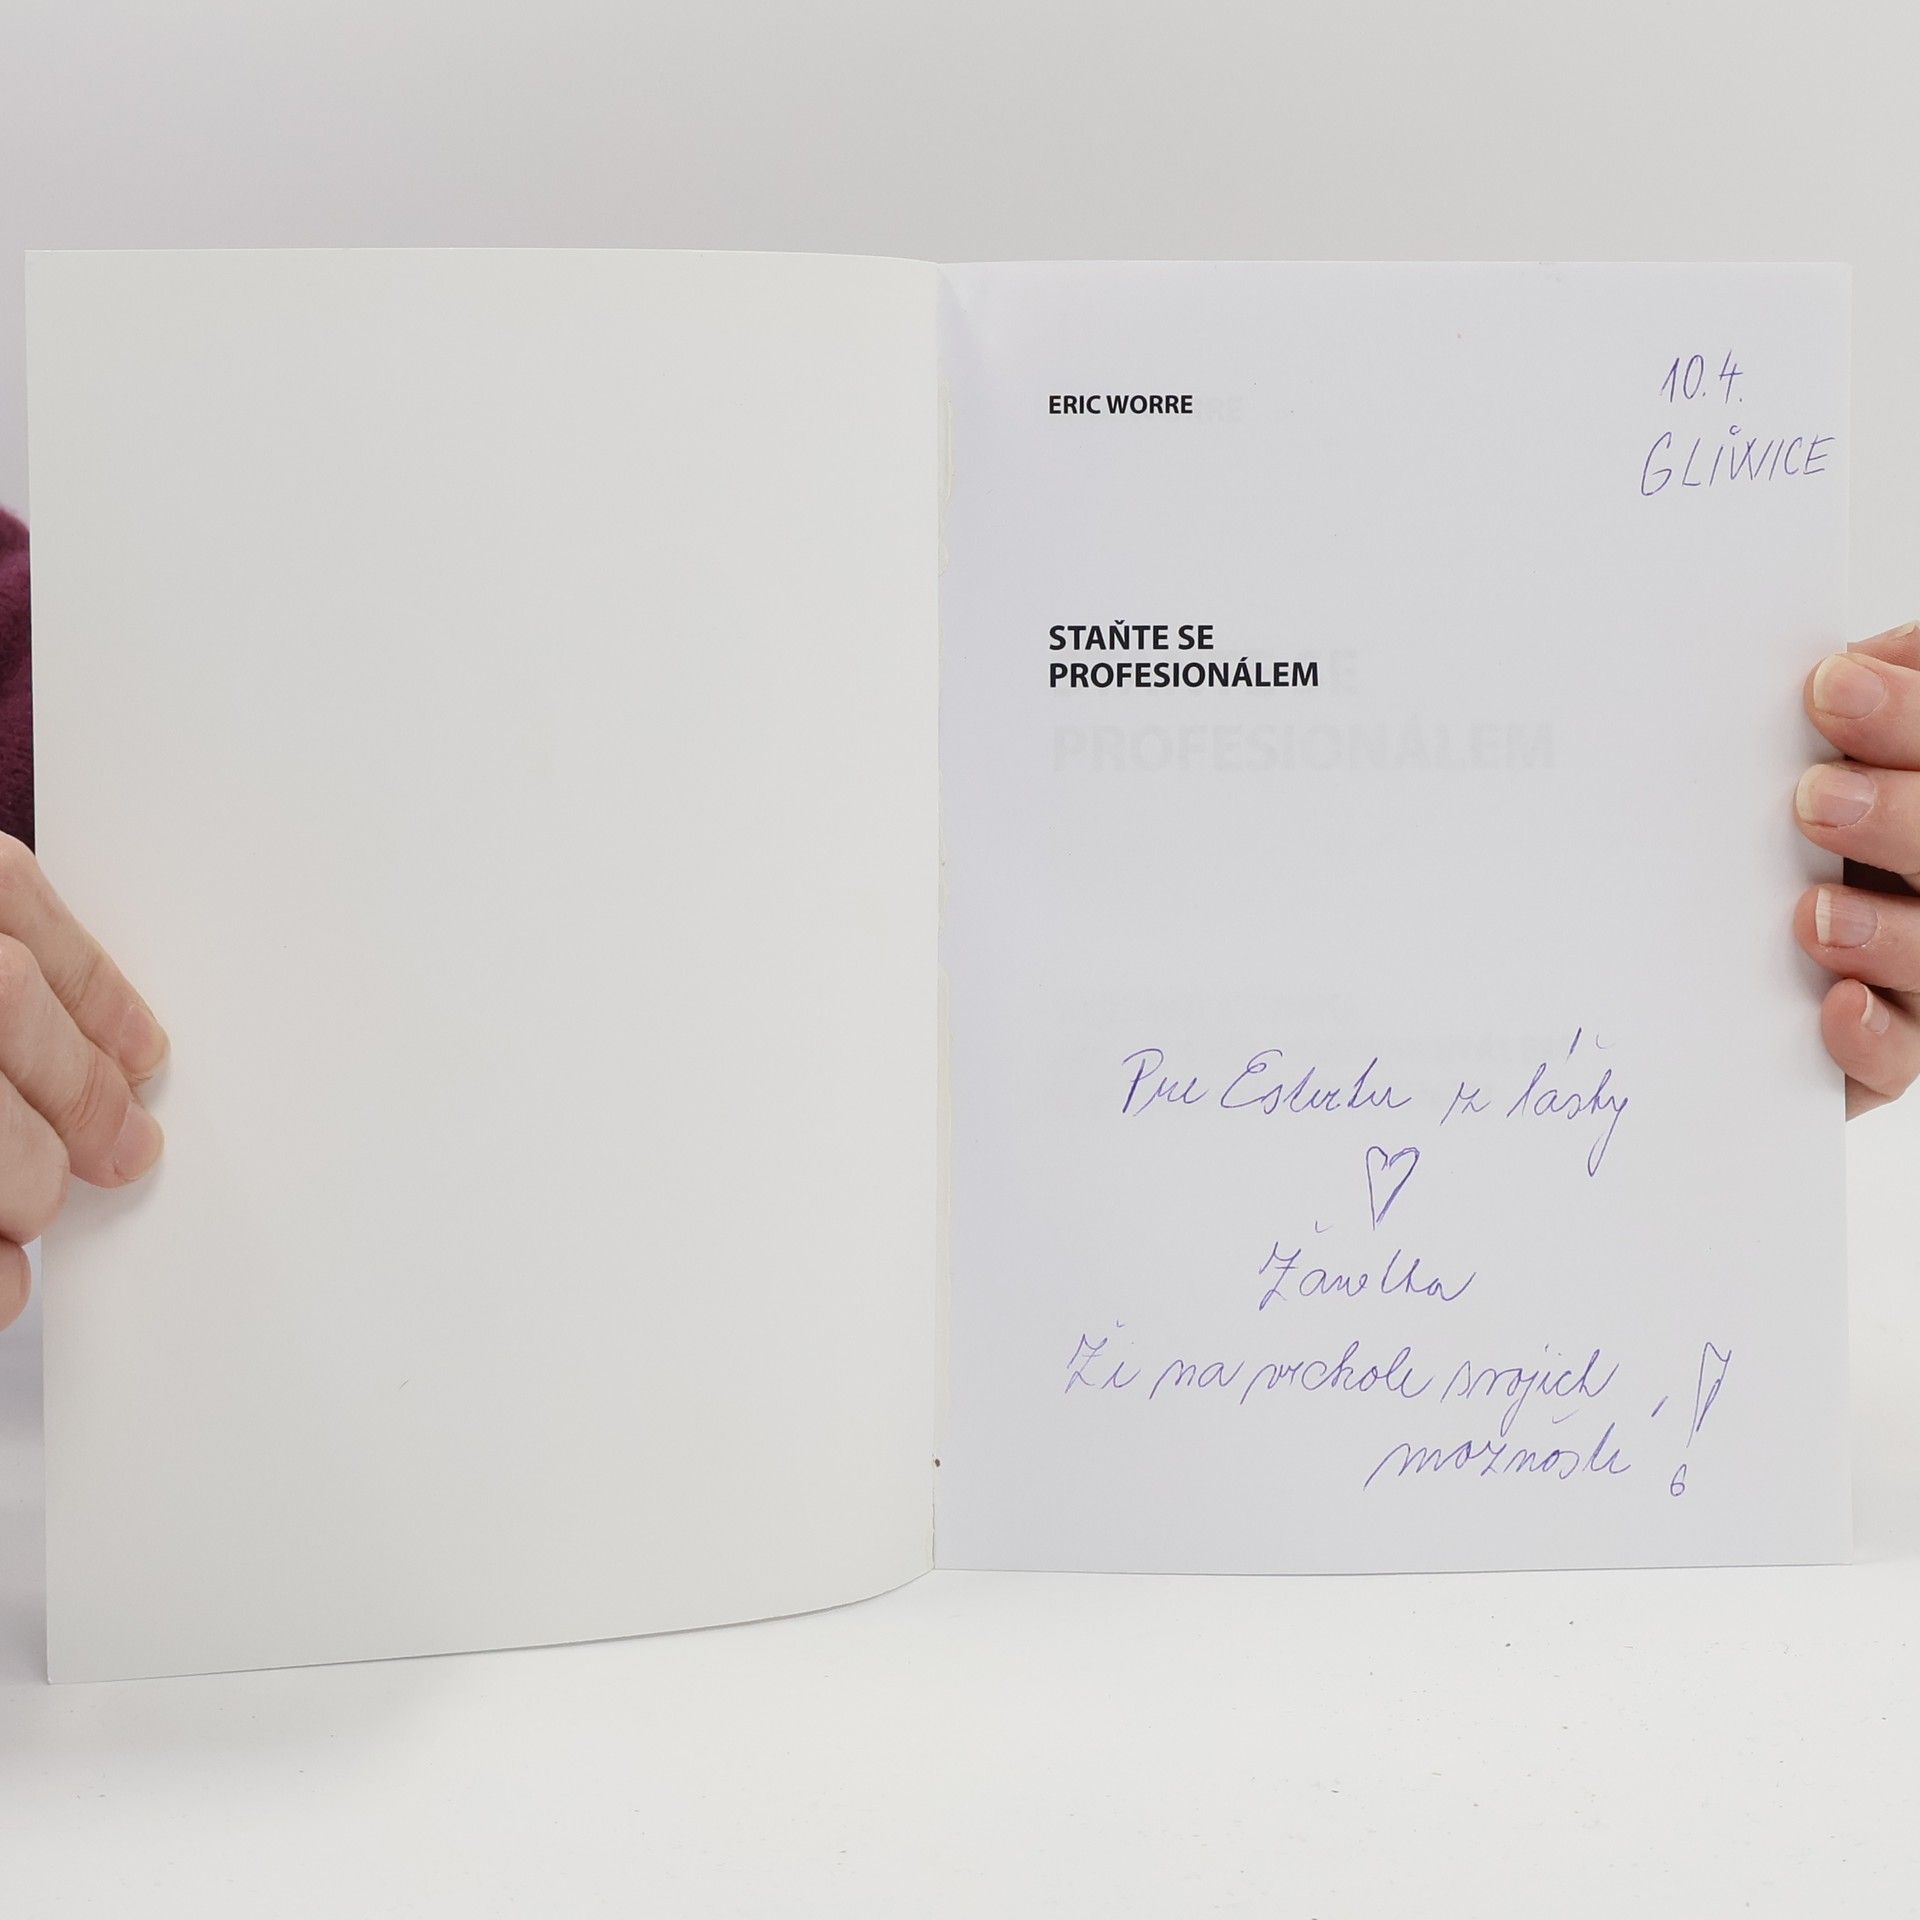 ERIC WORRE
10.4.
GLIWICE
STAŇTE SE
PROFESIONÁLEM
Pre Esterku z lásky
Žanetka
Ži na vrchole svojich
možností!